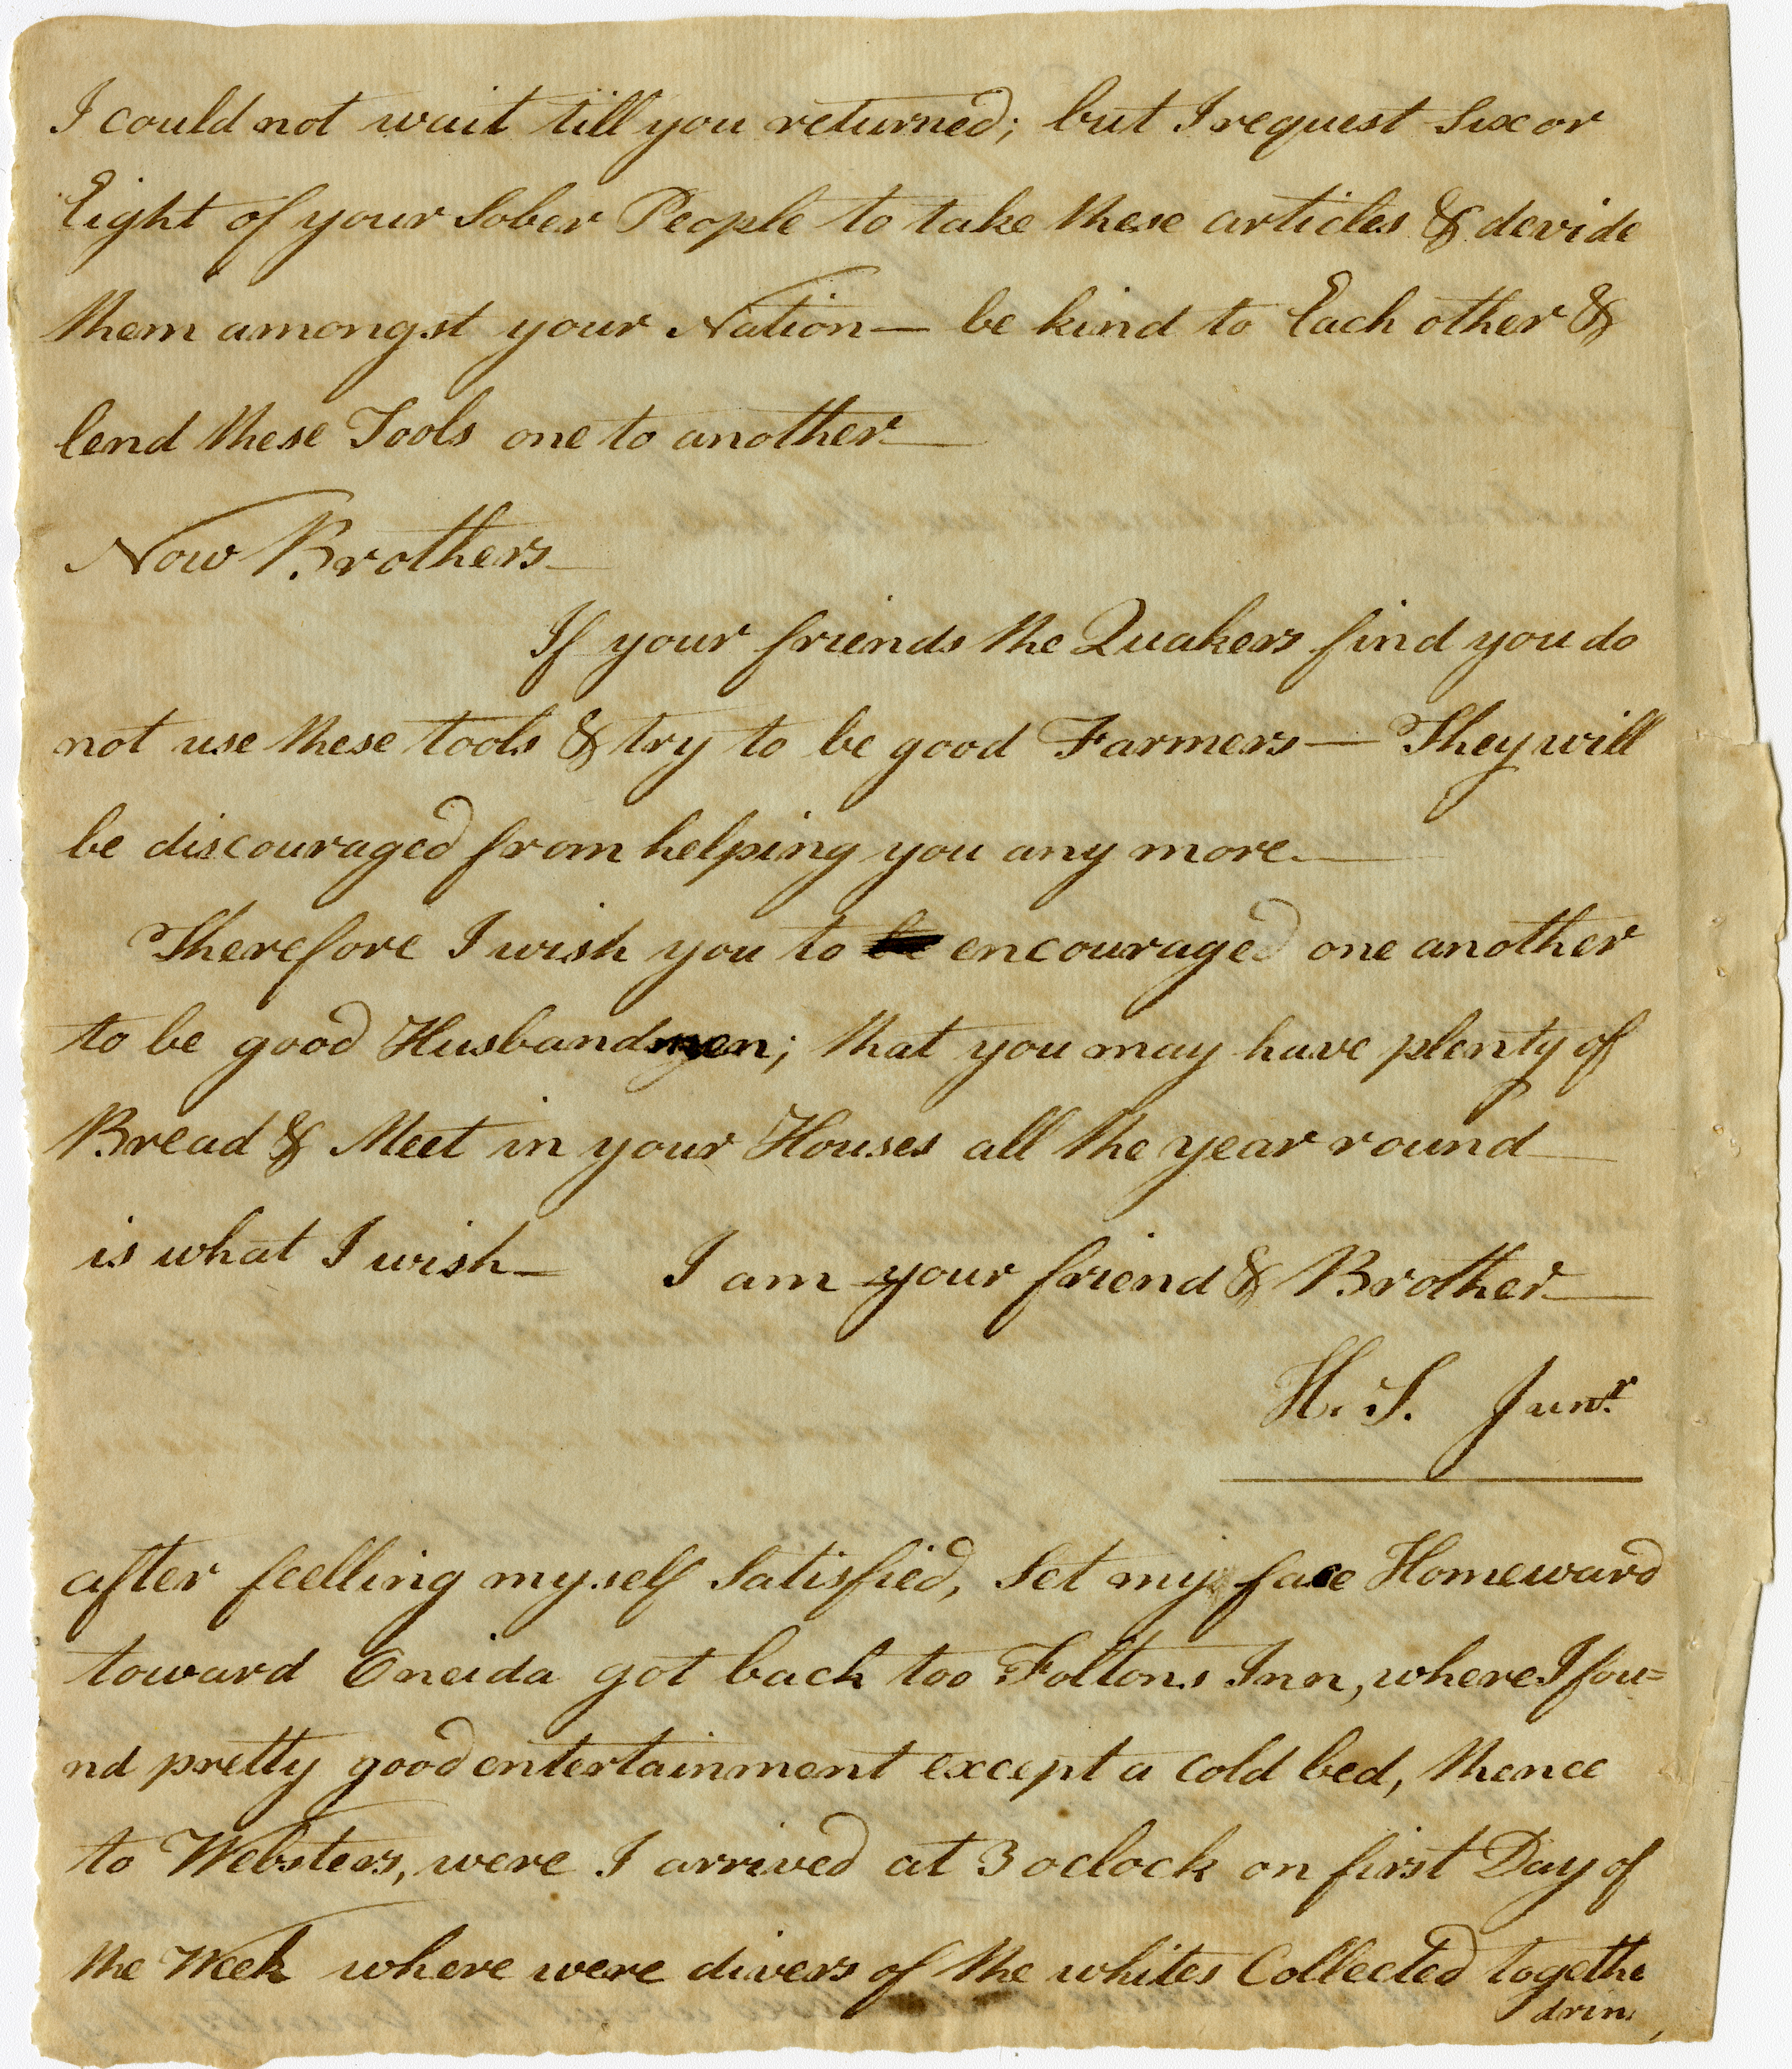 I could not wait till you returned; but I request Six or
Eight of your Sober People to take these articles & devide
them amongst your Nation — be kind to Each other &
lend these Tools one to another —
Now Brothers —
If your friends the Quakers find you do
not use these tools & try to be good Farmers — They will
be discouraged from helping you any more. —
Therefore I wish you to be encouraged one another
to be good Husbandmen; that you may have plenty of
Bread & Meet in your Houses all the year round —
is what I wish — I am your friend & Brother —
H. S. Junr.
after feelling myself Satisfied, Set my face Homeward
toward Oneida got back too Foltons Inn, where I fou=
nd pretty good entertainment except a Cold bed, thence
to Websters, were I arrived at 3 oclock on first Day of
the Week where were divers of the whites Collected togethe
drin